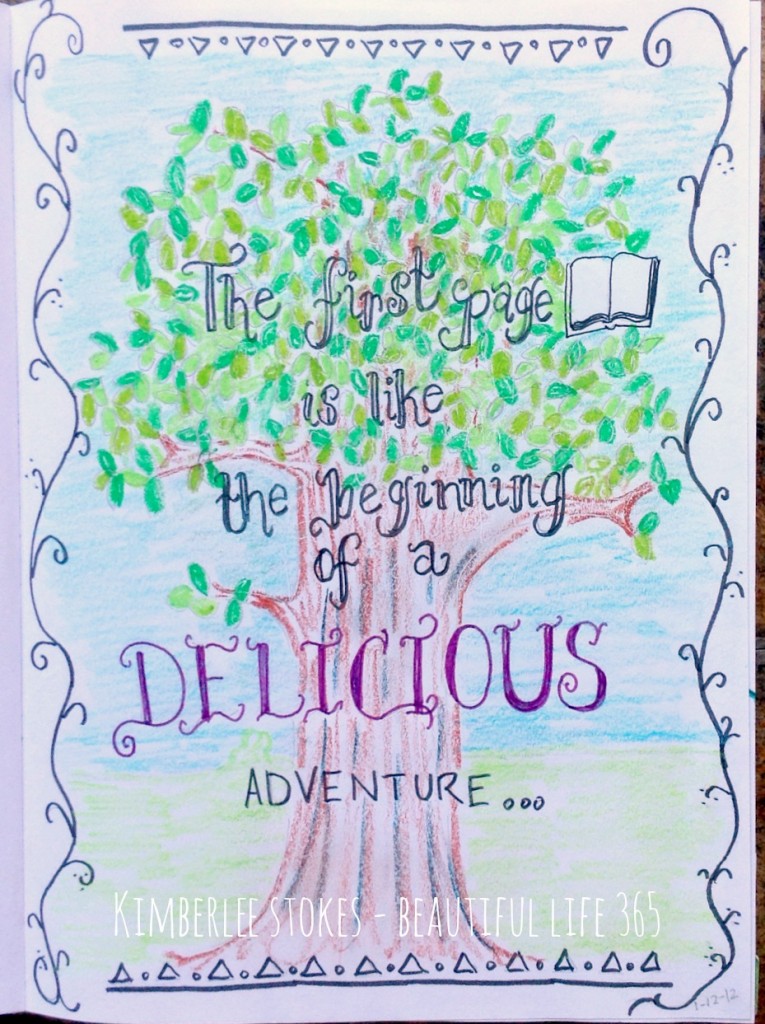 The first page
is like
the beginning
of a
DELICIOUS
ADVENTURE...
KIMBERLEE STOKES - BEAUTIFUL LIFE 365
1-12-12